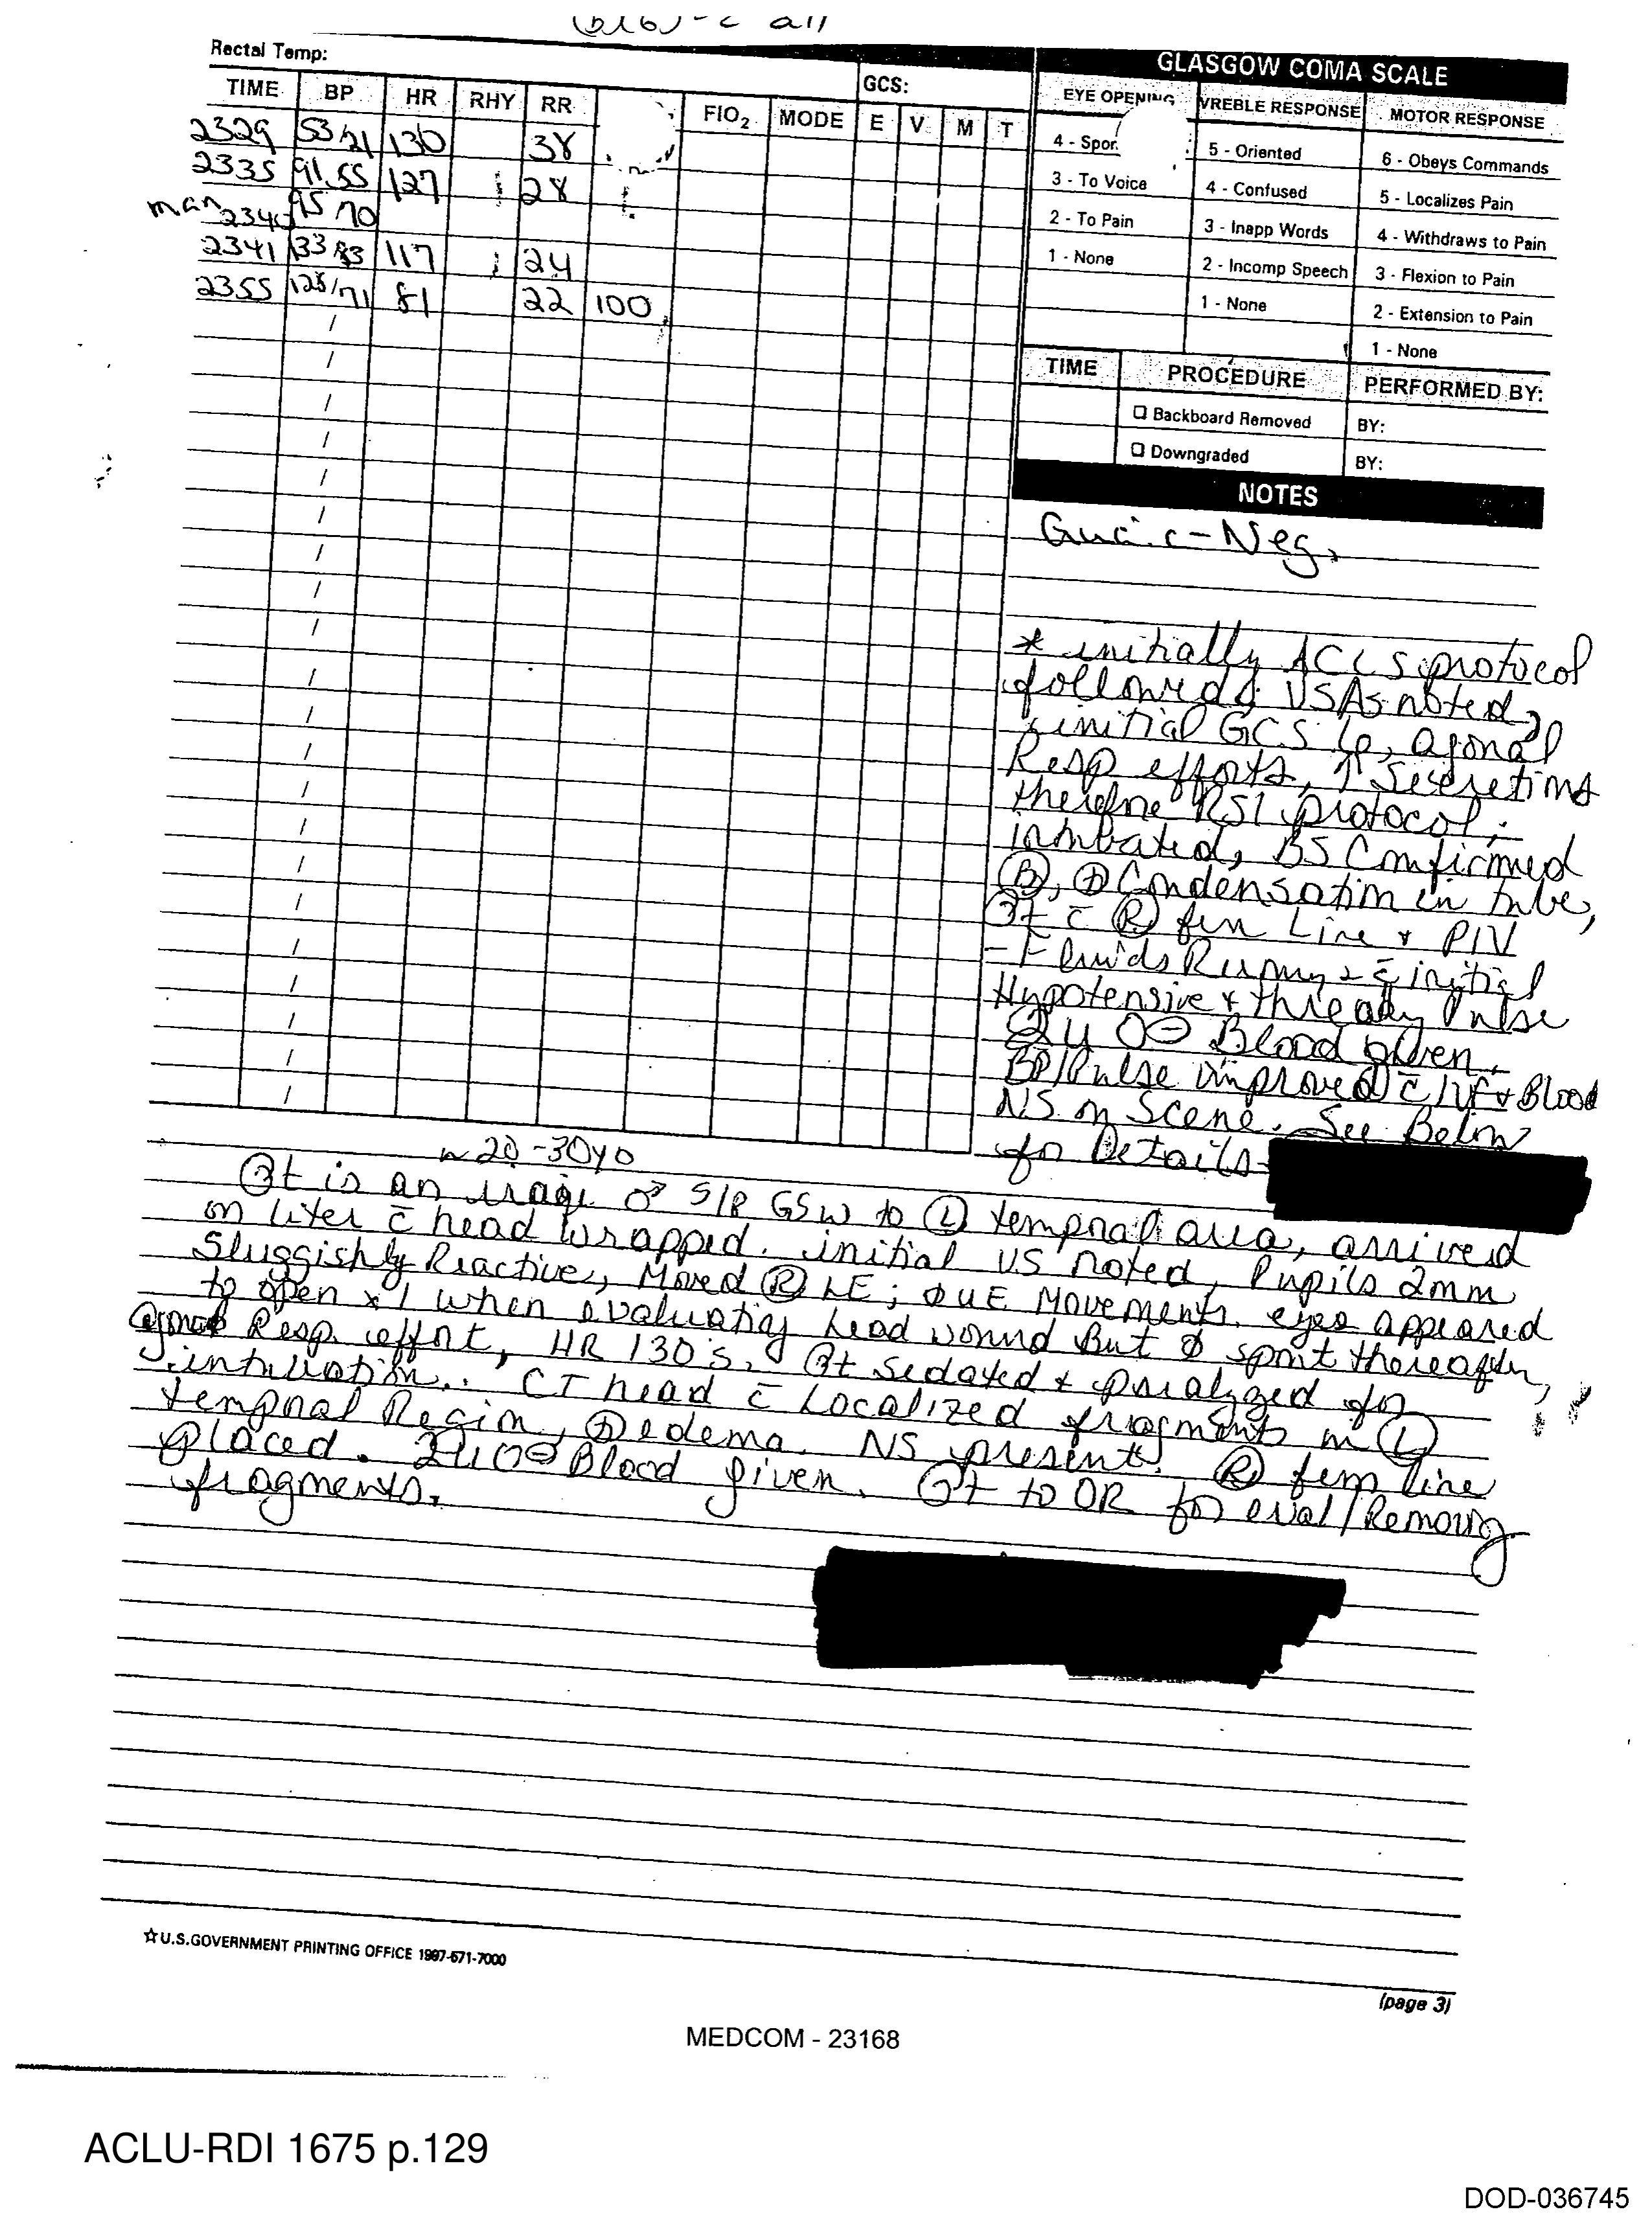 (b)(6)-2 all
Rectal Temp:
GCS:
TIME BP HR RHY RR FIO2 MODE E V M T
2329 53/21 130 38
2335 91/55 127 28
man 2340 95 70
2341 133 83 117 24
2355 128/71 81 22 100
GLASGOW COMA SCALE
EYE OPENING VREBLE RESPONSE MOTOR RESPONSE
4 - Spon 5 - Oriented 6 - Obeys Commands
3 - To Voice 4 - Confused 5 - Localizes Pain
2 - To Pain 3 - Inapp Words 4 - Withdraws to Pain
1 - None 2 - Incomp Speech 3 - Flexion to Pain
1 - None 2 - Extension to Pain
1 - None
TIME PROCEDURE PERFORMED BY:
☐ Backboard Removed BY:
☐ Downgraded BY:
NOTES
Guaiac - Neg.
* initially ACLS protocol
followed & VS As noted,
initial GCS 6, agonal
Resp efforts, ↑ Secretions
therefore RSI protocol;
intubated, BS Confirmed
Ⓑ, ⊕ Condensation in tube,
Pt c̄ Ⓡ fem Line + PIV
- Fluids Running c̄ initial
Hypotensive + thready Pulse
2u O⊖ Blood given.
BP/Pulse improved c̄ IVF + Blood
NS on Scene. See Below
for Details
~ 20-30yo
Pt is an iraqi ♂ S/P GSW to Ⓛ temporal area, arrived
on liter c̄ head wrapped. initial VS noted, Pupils 2mm
Sluggishly Reactive, Moved Ⓡ LE; ∅ UE Movements. eyes appeared
to open x 1 when evaluating head wound But ∅ spont thereafter,
agonal Resp. effort, HR 130's. Pt sedated + paralyzed for
intubation. CT head c̄ Localized fragments in Ⓛ
temporal Region, ⊕ edema. NS present. Ⓡ fem line
placed. 2u O⊖ Blood given. Pt to OR for eval/Removing
fragments.
☆U.S.GOVERNMENT PRINTING OFFICE 1997-571-7000
(page 3)
MEDCOM - 23168
ACLU-RDI 1675 p.129
DOD-036745